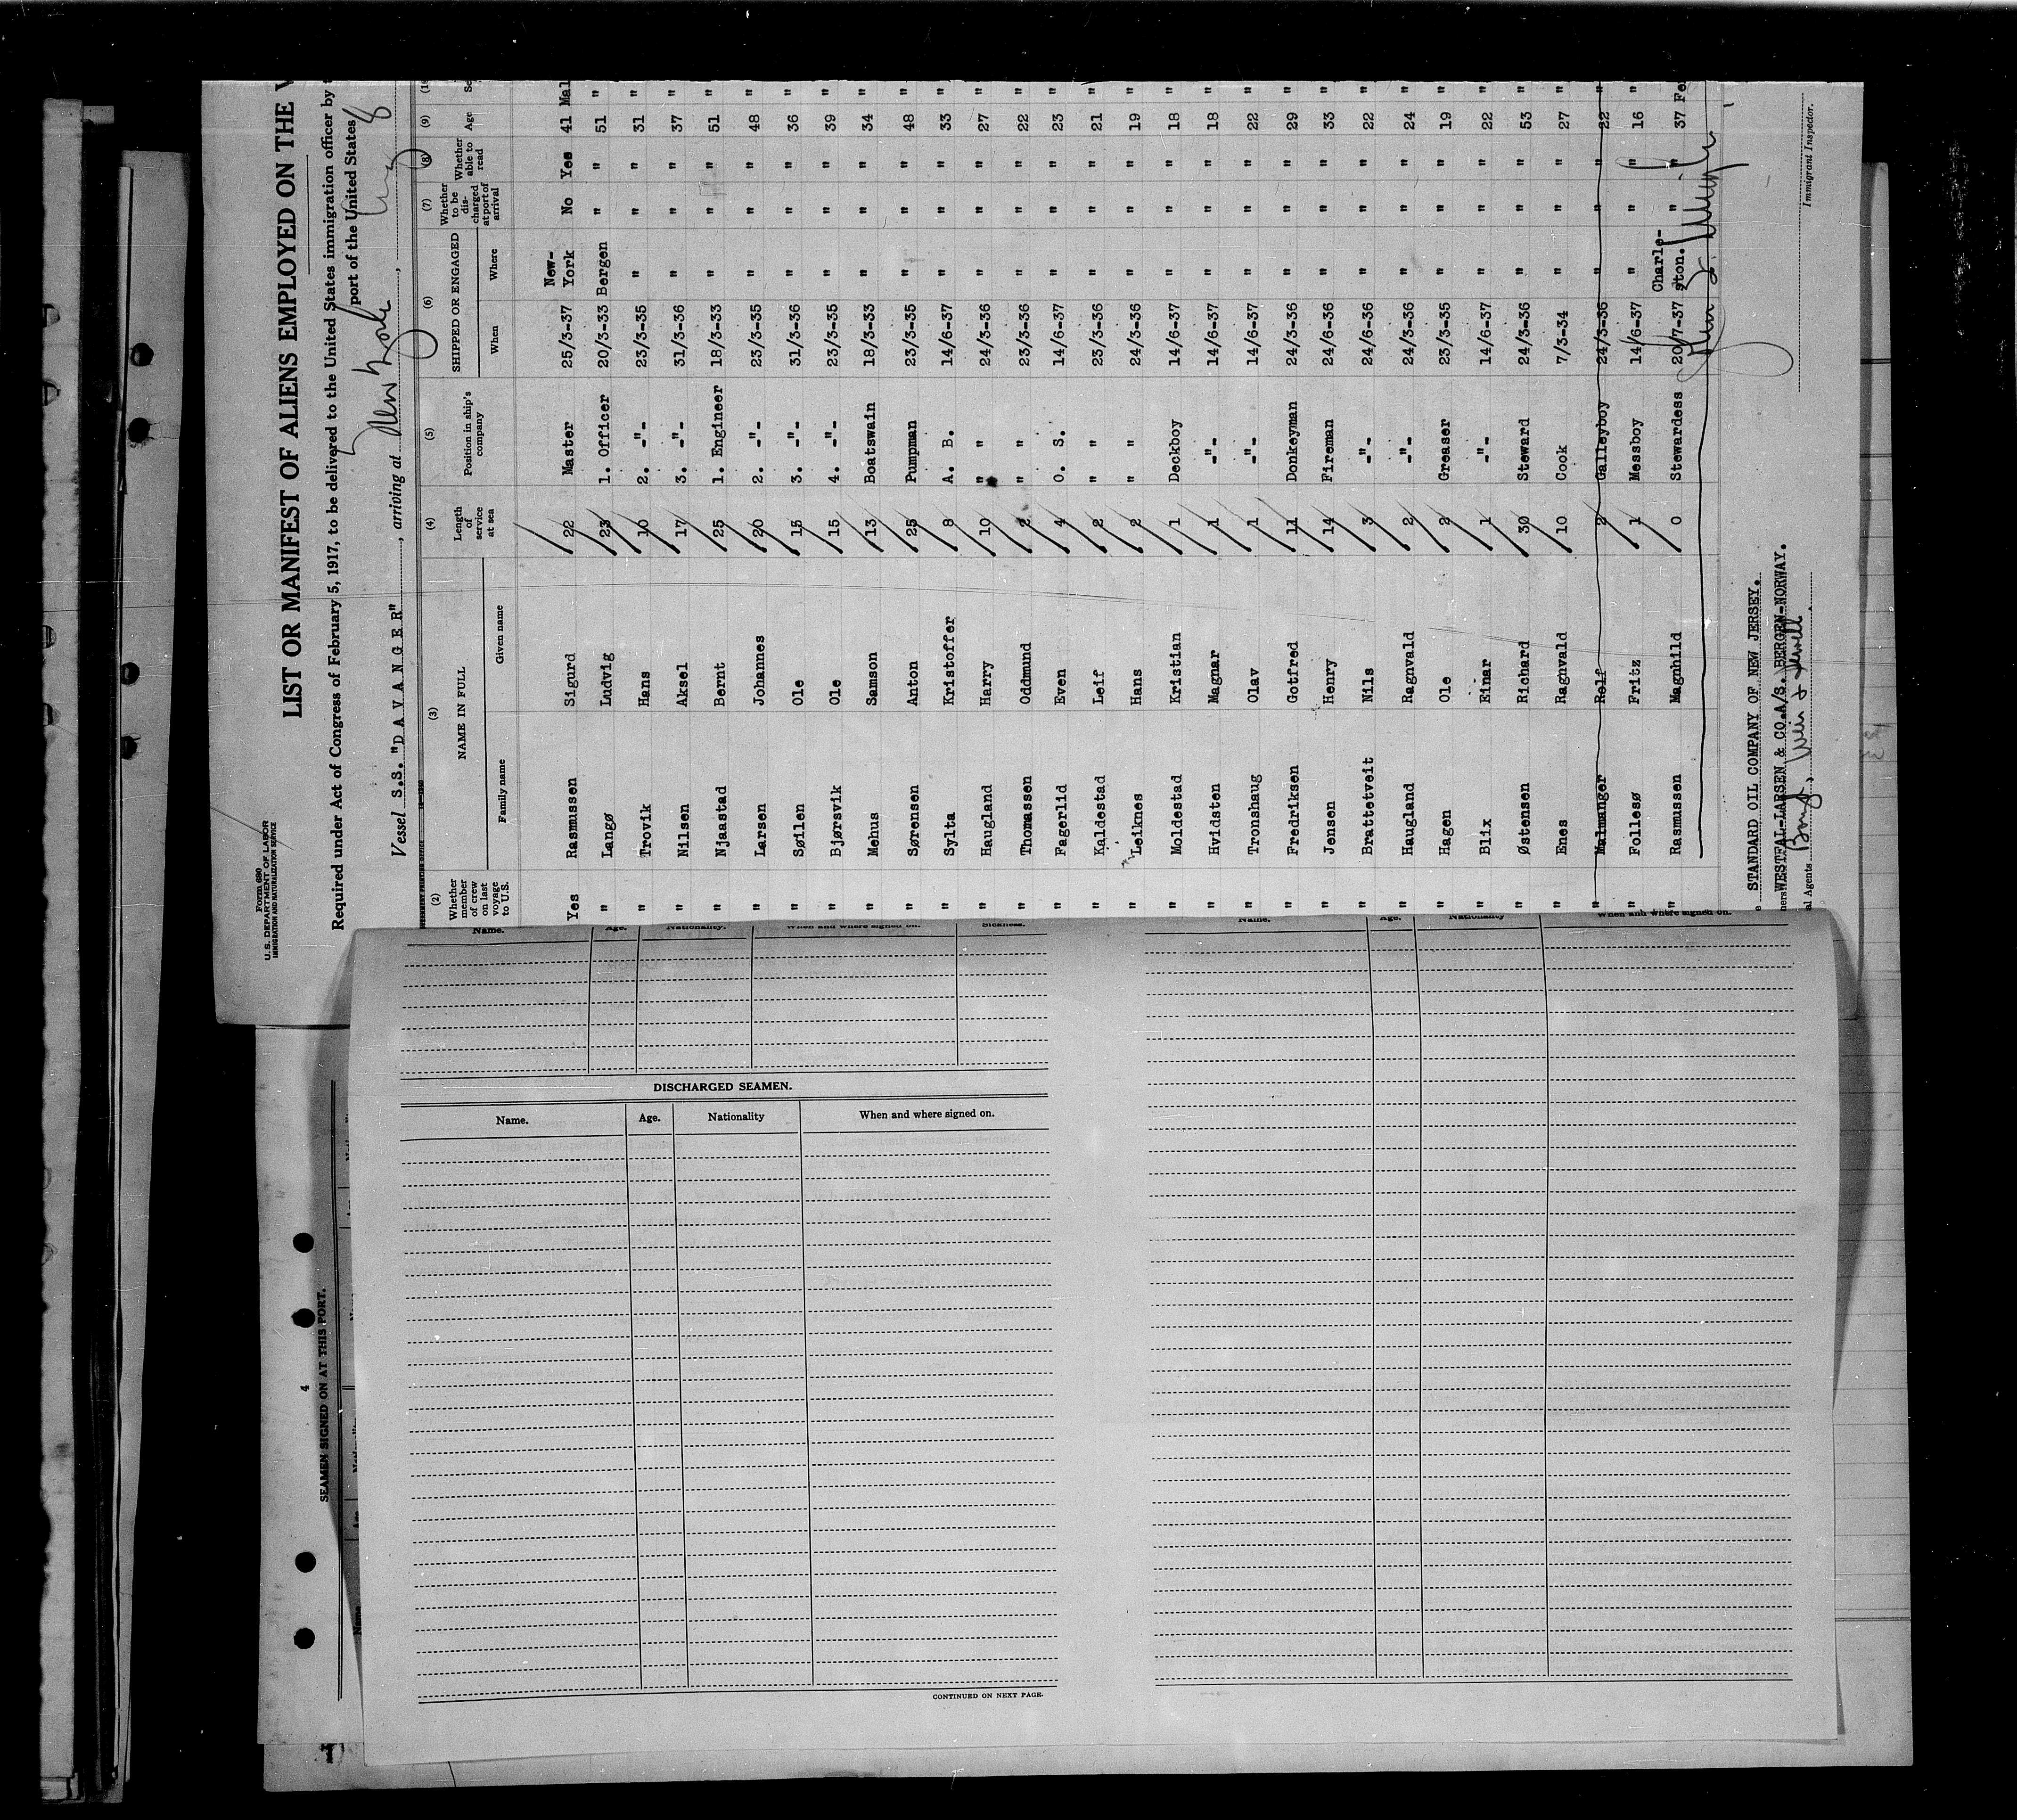 Form 680
U. S. DEPARTMENT OF LABOR
IMMIGRATION AND NATURALIZATION SERVICE
LIST OR MANIFEST OF ALIENS EMPLOYED ON THE
Required under Act of Congress of February 5, 1917, to be delivered to the United States immigration officer by
port of the United States
Vessel S.S. "D A V A N G E R" , arriving at New York ,
(2) (3) (4) (5) (6) (7) (8) (9)
Whether member of crew on last voyage to U.S. NAME IN FULL Family name Given name Length of service at sea Position in ship's company SHIPPED OR ENGAGED When Where Whether to be discharged at port of arrival Whether able to read Age
Yes Rasmussen Sigurd 22 Master 25/3-37 New-York No Yes 41 Mal
" Langø Ludvig 23 1. Officer 20/3-33 Bergen " " 51 "
" Trovik Hans 10 2. -"- 23/3-35 " " " 31 "
" Nilsen Aksel 17 3. -"- 31/3-36 " " " 37 "
" Njaastad Bernt 25 1. Engineer 18/3-33 " " " 51 "
" Larsen Johannes 20 2. -"- 23/3-35 " " " 48 "
" Søilen Ole 15 3. -"- 31/3-36 " " " 36 "
" Bjørsvik Ole 15 4. -"- 23/3-35 " " " 39 "
" Mehus Samson 13 Boatswain 18/3-33 " " " 34 "
" Sørensen Anton 25 Pumpman 23/3-35 " " " 48 "
" Sylta Kristoffer 8 A. B. 14/6-37 " " " 33 "
" Haugland Harry 10 " 24/3-36 " " " 27 "
" Thomassen Oddmund 2 " 23/3-36 " " " 22 "
" Fagerlid Even 4 O. S. 14/6-37 " " " 23 "
" Kaldestad Leif 2 " 23/3-36 " " " 21 "
" Leiknes Hans 2 " 24/3-36 " " " 19 "
" Moldestad Kristian 1 Deckboy 14/6-37 " " " 18 "
" Hvidsten Magnar 1 -"- 14/6-37 " " " 18 "
" Tronshaug Olav 1 -"- 14/6-37 " " " 22 "
" Fredriksen Gotfred 11 Donkeyman 24/3-36 " " " 29 "
" Jensen Henry 14 Fireman 24/6-36 " " " 33 "
" Brattetveit Nils 3 -"- 24/6-36 " " " 22 "
" Haugland Ragnvald 2 -"- 24/3-36 " " " 24 "
" Hagen Ole 2 Greaser 23/3-35 " " " 19 "
" Blix Einar 1 -"- 14/6-37 " " " 22 "
" Østensen Richard 30 Steward 24/3-36 " " " 53 "
" Enes Ragnvald 10 Cook 7/3-34 " " " 27 "
" Malmanger Rolf 2 Galleyboy 24/3-36 " " " 22 "
" Follesø Fritz 1 Messboy 14/6-37 " " " 16 "
" Rasmussen Magnhild 0 Stewardess 20/7-37 Charle-ston. " " 37 Fe
STANDARD OIL COMPANY OF NEW JERSEY.
WESTFAL-LARSEN & CO.A/S. BERGEN-NORWAY.
al Agents
Immigrant Inspector.
Name. Age. Nationality. When and where signed on. Sickness.
DISCHARGED SEAMEN.
Name. Age. Nationality When and where signed on.
CONTINUED ON NEXT PAGE.
Name. Age. Nationality When and where signed on.
4
SEAMEN SIGNED ON AT THIS PORT.